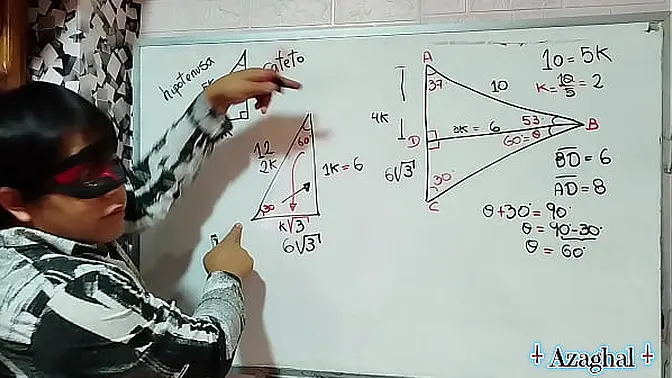 hipotenusa
Cateto
5K
12
2K
60°
30°
1K = 6
K√3
6√3
A
37°
10
4K
D
3K = 6
53°
60° = θ
B
6√3
30°
C
10 = 5K
K = 10/5 = 2
BD = 6
AD = 8
θ + 30° = 90°
θ = 90° - 30°
θ = 60°
Azaghal